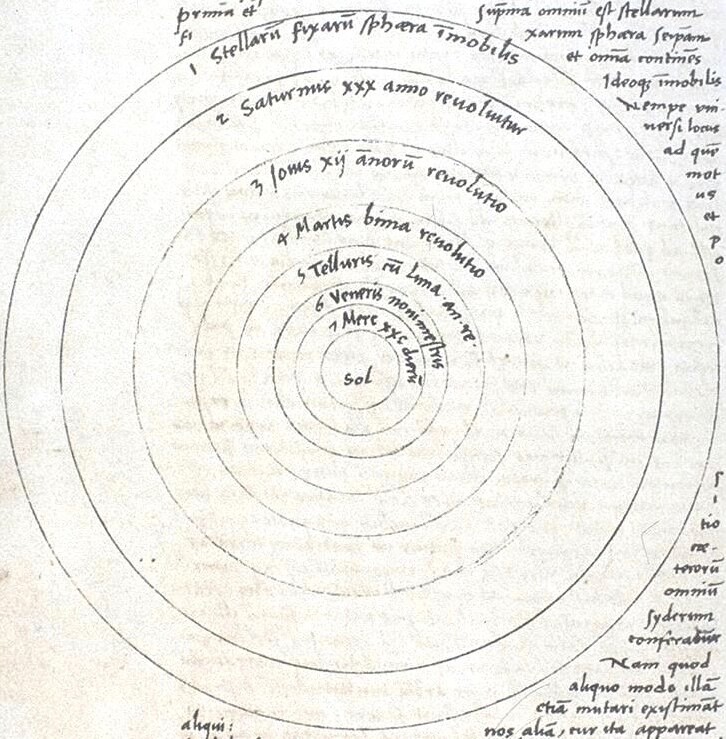 primā et
fi
Supīma omniū est stellarum
xarum sphæra seipam
et omīa continēs
Ideoqs īmobilis
Nempe vni
uersi locus
ad quē
mot
us
et
p
o
1 Stellarū fixarū sphæra īmobilis
2 Saturnus xxx anno reuoluitur
3 Iouis xij ānorū reuolutio
4 Martis bima reuolutio
5 Telluris cū Luna an. re
6 Veneris nonimestris
7 Merc xxc dierū
Sol
s
i
tio
cæ-
terorū
omniū
syderum
conferatur
Nam quod
aliquo modo illā
etiā mutari existimāt
aliqui:
nos aliā, cur ita appareat